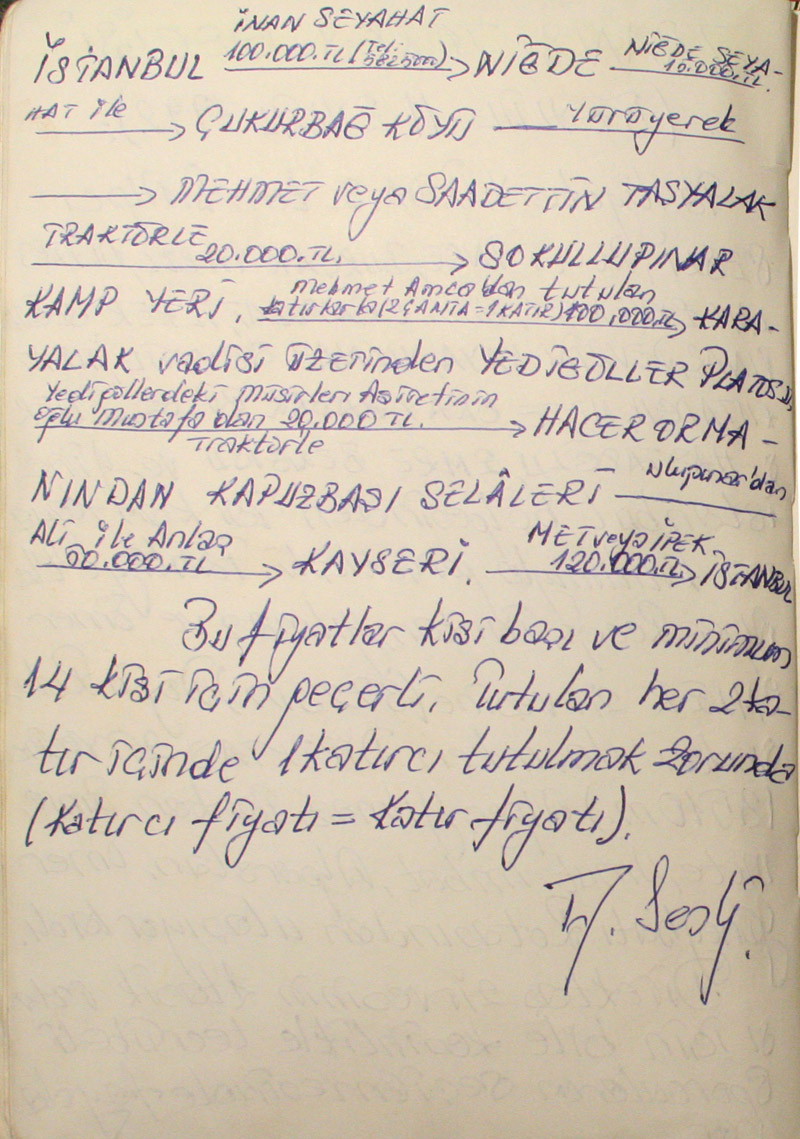 İNAN SEYAHAT
İSTANBUL 100.000.TL(Tel: 5625000) → NİĞDE NİĞDE SEYA-
10.000.TL.
HAT ile → ÇUKURBAĞ KÖYÜ Yürüyerek
→ MEHMET veya SAADETTİN TASYALAK
TRAKTÖRLE 20.000.TL. → SOKULLUPINAR
KAMP YERİ. Mehmet Amca'dan tutulan
katırlarla(2ÇANTA=1KATIR)100.000TL → KARA-
YALAK vadisi ÜZERİNDEN YEDİGÖLLER PLATOSU,
Yedigöllerdeki Aşiretinin
oğlu Mustafa olan 20.000 TL. → HACER ORMA-
Traktörle
NINDAN KAPUZBAŞI ŞELÂLERİ Ulupınar'dan
Ali ile Anlaş
60.000.TL → KAYSERİ. METveyaİPEK
120.000.TL → İSTANBUL
Bu fiyatlar kişi başı ve minimum
14 kişi için geçerli. Tutulan her 2 ka-
tır içinde 1 katırcı tutulmak zorunda
(Katırcı fiyatı = Katır fiyatı).